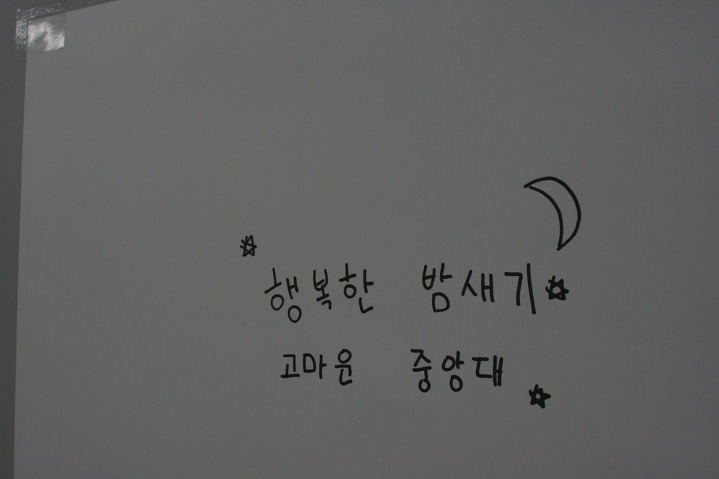 행복한 밤새기
고마운 중앙대